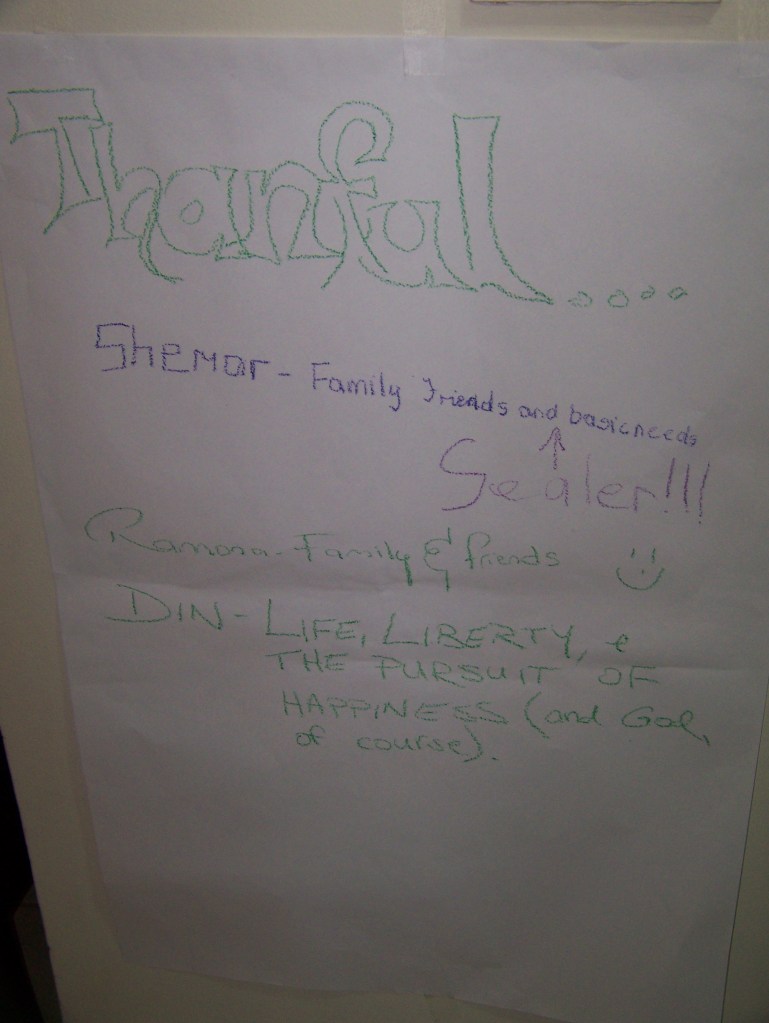 Thanful....
Shemar - Family friends and basicneeds
↑
Sealer!!!
Ramona - Family & friends
DIN - LIFE, LIBERTY, &
THE PURSUIT OF
HAPPINESS (and God,
of course).